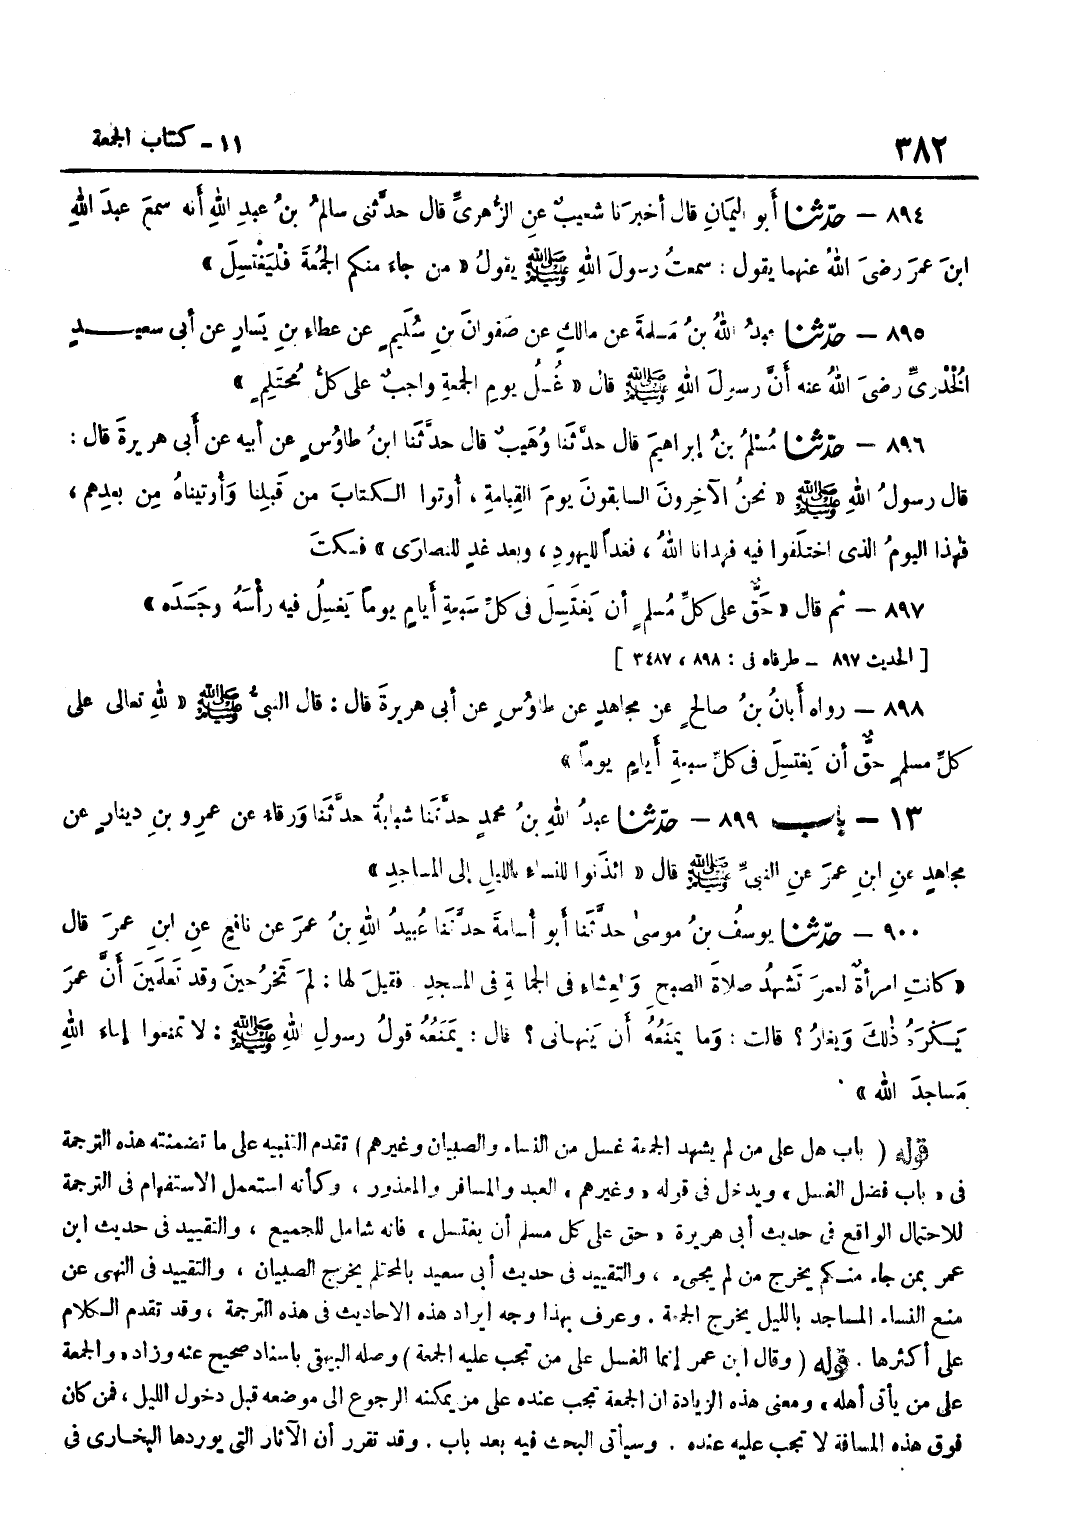 ٣٨٢
١١ - كتاب الجمعة
٨٩٤ - حدّثنا أبو اليمانِ قال أخبرَنا شعيبٌ عنِ الزُّهرىِّ قال حدَّثنى سالمُ بنُ عبدِ اللهِ أنه سمعَ عبدَ اللهِ
ابنَ عمرَ رضىَ اللهُ عنهما يقول : سمعتُ رسولَ اللهِ ﷺ يقولُ « من جاءَ منكم الجمُعةَ فلْيَغْتسِلَ »
٨٩٥ - حدّثنا عبدُ اللهُ بنُ مَسلمةَ عن مالكٍ عن صَفوانَ بنِ سُليمٍ عن عطاءِ بنِ يَسارٍ عن أبى سعيدٍ
الخُدْرىِّ رضىَ اللهُ عنه أنَّ رسولَ اللهِ ﷺ قال « غُسلُ يومِ الجمعةِ واجبٌ على كلِّ مُحتَلِمٍ »
٨٩٦ - حدّثنا مُسْلمُ بنُ إبراهيمَ قال حدَّثَنا وُهَيبٌ قال حدَّثَنا ابنُ طاوُسٍ عن أبيه عن أبى هريرةَ قال :
قال رسولُ اللهِ ﷺ « نحنُ الآخِرونَ السابقونَ يومَ القِيامةِ ، أُوتوا الكتابَ من قَبلِنا وَأُوتيناهُ مِن بعدِهم ،
فهٰذا اليومُ الذى اختلَفوا فيه فهدانا اللهُ ، فغداً لليهودِ ، وبعد غدٍ للنصارَى » فسكتَ
٨٩٧ - ثم قال « حَقٌّ على كلِّ مُسلمٍ أن يَغتَسِلَ فى كلِّ سَبعةِ أيامٍ يوماً يَغسِلُ فيه رأْسَهُ وجَسَدَه »
[ الحديث ٨٩٧ - طرفاه فى : ٨٩٨ ، ٣٤٨٧ ]
٨٩٨ - رواه أبانُ بنُ صالحٍ عن مجاهدٍ عن طاوُسٍ عن أبى هريرةَ قال : قال النبىُّ ﷺ « للهِ تعالى على
كلِّ مسلمٍ حقٌّ أن يَغتسِلَ فى كلِّ سبعةِ أيامٍ يوماً »
١٣ - باب ٨٩٩ - حدّثنا عبدُ اللهِ بنُ محمدٍ حدَّثَنا شَبابةُ حدَّثَنا وَرقاءُ عن عمرِو بنِ دينارٍ عن
مجاهدٍ عنِ ابنِ عمرَ عنِ النبىِّ ﷺ قال « ائذَنوا للنساءِ بالليلِ إلى المساجدِ »
٩٠٠ - حدّثنا يوسفُ بنُ موسىٰ حدَّثَنا أبو أسامةَ حدَّثَنا عُبيدُ اللهِ بنُ عمرَ عن نافعٍ عنِ ابنِ عمرَ قال
« كانتِ امرأةٌ لعمرَ تَشهدُ صلاةَ الصبحِ وَالعِشاءِ فى الجماعةِ فى المسجدِ فقيلَ لها : لمَ تَخرُجينَ وقد تَعلَمينَ أنَّ عمرَ
يَكْرَهُ ذٰلكَ وَيَغارُ ؟ قالت : وَما يمنَعُهُ أن يَنهانى ؟ قال : يَمنَعُه قولُ رسولِ اللهِ ﷺ : لا تمنعوا إماءَ اللهِ
مَساجدَ الله »
قوله ( باب هل على من لم يشهد الجمعة غسل من النساء والصبيان وغيرهم ) تقدم التنبيه على ما تضمنته هذه الترجمة
فى « باب فضل الغسل » ويدخل فى قوله « وغيرهم » العبد والمسافر والمعذور ، وكأنه استعمل الاستفهام فى الترجمة
للاحتمال الواقع فى حديث أبى هريرة « حق على كل مسلم أن يغتسل » فانه شامل للجميع ، والتقييد فى حديث ابن
عمر بمن جاء منكم يخرج من لم يجىء ، والتقييد فى حديث أبى سعيد بالمحتلم يخرج الصبيان ، والتقييد فى النهى عن
منع النساء المساجد بالليل يخرج الجمعة . وعرف بهذا وجه ايراد هذه الاحاديث فى هذه الترجمة ، وقد تقدم الكلام
على أكثرها . قوله ( وقال ابن عمر إنما الغسل على من تجب عليه الجمعة ) وصله البيهقى باسناد صحيح عنه وزاد « والجمعة
على من يأتى أهله » ومعنى هذه الزيادة ان الجمعة تجب عنده على من يمكنه الرجوع الى موضعه قبل دخول الليل ، فمن كان
فوق هذه المسافة لا تجب عليه عنده . وسيأتى البحث فيه بعد باب . وقد تقرر أن الآثار التى يوردها البخارى فى